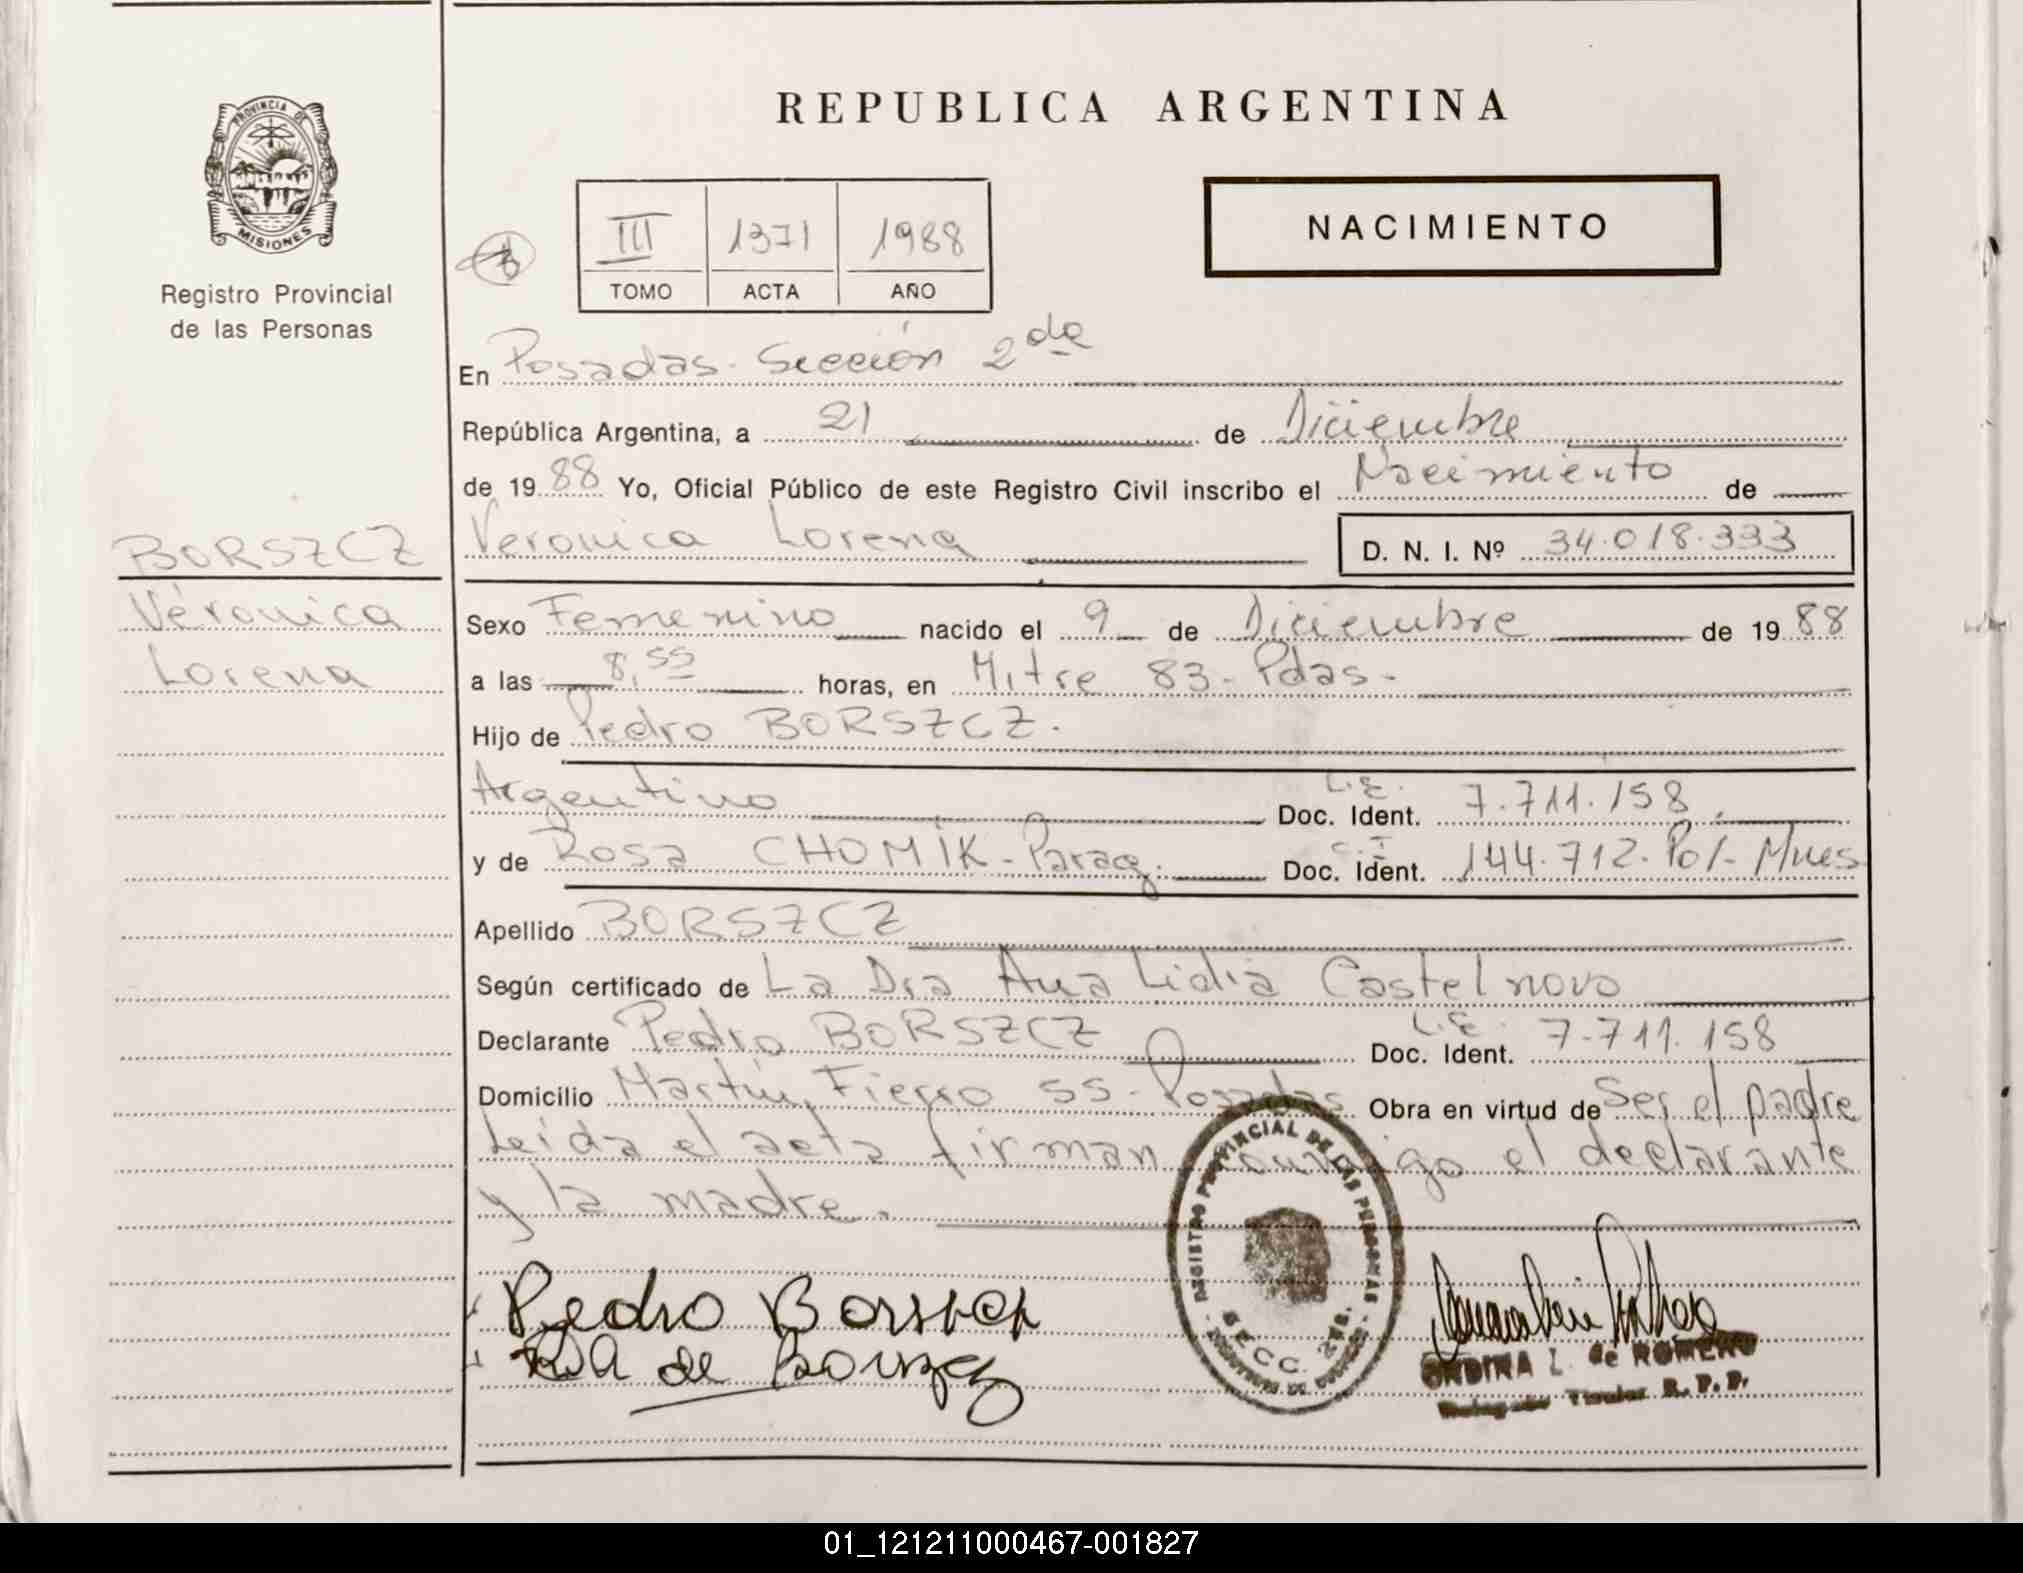 PROVINCIA DE
MISIONES
Registro Provincial
de las Personas
BORSZCZ
Verónica
Lorena
REPUBLICA ARGENTINA
III 1371 1988
TOMO ACTA AÑO
NACIMIENTO
En Posadas - Sección 2da
República Argentina, a 21 de Diciembre
de 1988 Yo, Oficial Público de este Registro Civil inscribo el Nacimiento de
Veronica Lorena D. N. I. Nº 34.018.333
Sexo Femenino nacido el 9 de Diciembre de 1988
a las 8,55 horas, en Mitre 83 - Pdas.
Hijo de Pedro BORSZCZ.
Argentino L.E. Doc. Ident. 7.711.158
y de Rosa CHOMIK - Parag. C.I. Doc. Ident. 144.712. Pol. Mnes
Apellido BORSZCZ
Según certificado de La Dra Ana Lidia Castelnovo
Declarante Pedro BORSZCZ L.E. Doc. Ident. 7.711.158
Domicilio Martín Fierro 55 - Posadas Obra en virtud de Ser el padre
Leída el acta firman conmigo el declarante
y la madre.
REGISTRO PROVINCIAL DE LAS PERSONAS
SECC. 2da.
Pedro Borszcz
Rosa de Borszcz
ONDINA L. de ROMERO
Titular R. P. P.
01_121211000467-001827